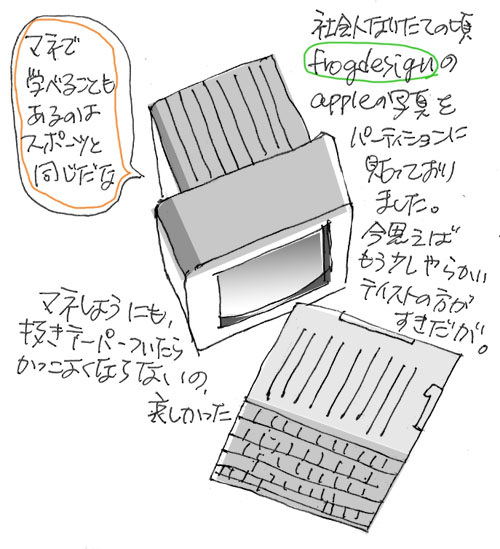 マネで
学べることも
あるのは
スポーツと
同じだな
社会人なりたての頃
frogdesignの
appleの写真を
パーティションに
貼っており
ました。
今思えば
もう少しやらかい
テイストの方が
すきだが。
マネしようにも、
抜きテーパーついたら
かっこよくならないの、
哀しかった